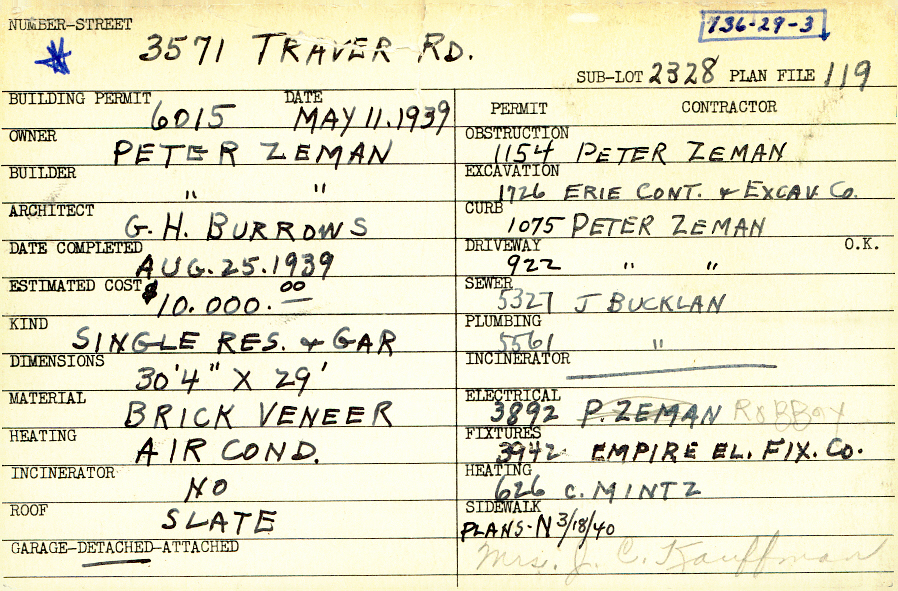 NUMBER-STREET
3571 TRAVER RD.
736-29-3
SUB-LOT 2328 PLAN FILE 119
BUILDING PERMIT 6015 DATE MAY 11.1939
OWNER PETER ZEMAN
BUILDER " "
ARCHITECT G. H. BURROWS
DATE COMPLETED AUG. 25. 1939
ESTIMATED COST $10.000.00
KIND SINGLE RES. & GAR
DIMENSIONS 30'4" X 29'
MATERIAL BRICK VENEER
HEATING AIR COND.
INCINERATOR NO
ROOF SLATE
GARAGE-DETACHED-ATTACHED
PERMIT CONTRACTOR
OBSTRUCTION 1154 PETER ZEMAN
EXCAVATION 1726 ERIE CONT. & EXCAV. CO.
CURB 1075 PETER ZEMAN
DRIVEWAY 922 " " O.K.
SEWER 5327 J BUCKLAN
PLUMBING 5561 "
INCINERATOR
ELECTRICAL 3892 P. ZEMAN
FIXTURES 3942 EMPIRE EL. FIX. CO.
HEATING 626 C. MINTZ
SIDEWALK
PLANS-N 3/18/40
Mrs. J. C. Kauffman